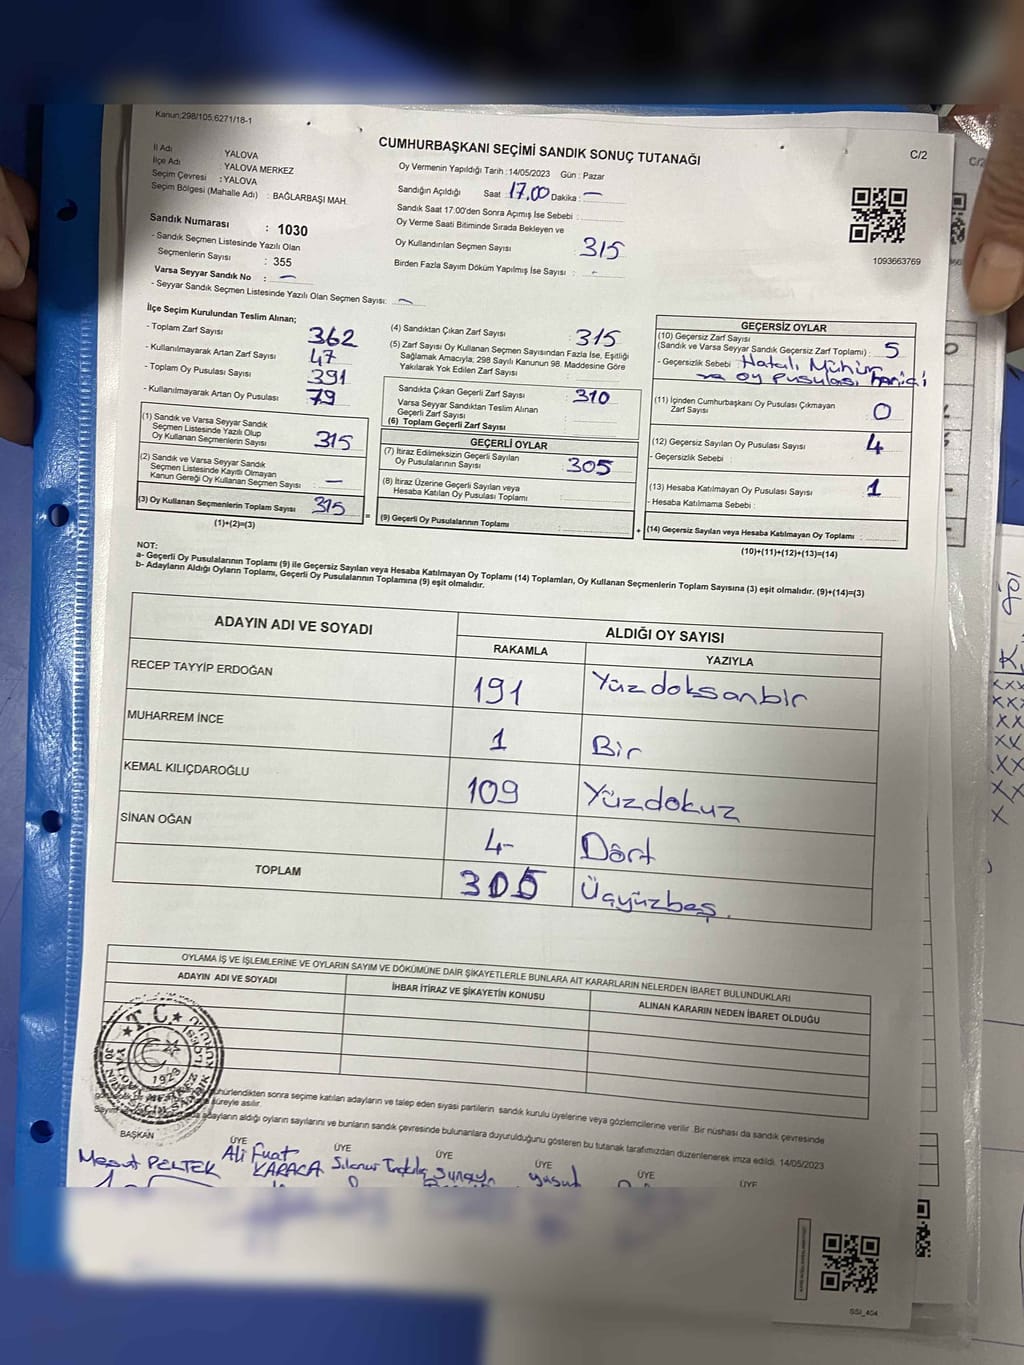 Kanun:298/105,6271/18-1
CUMHURBAŞKANI SEÇİMİ SANDIK SONUÇ TUTANAĞI
C/2
İl Adı : YALOVA
İlçe Adı : YALOVA MERKEZ
Seçim Çevresi : YALOVA
Seçim Bölgesi (Mahalle Adı) : BAĞLARBAŞI MAH.
Oy Vermenin Yapıldığı Tarih :14/05/2023 Gün : Pazar
Sandığın Açıldığı Saat 17.00 Dakika : —
Sandık Saat 17:00'den Sonra Açımış İse Sebebi :
Oy Verme Saati Bitiminde Sırada Bekleyen ve
Oy Kullandırılan Seçmen Sayısı : 315
Birden Fazla Sayım Döküm Yapılmış İse Sayısı : -
1093663769
Sandık Numarası : 1030
- Sandık Seçmen Listesinde Yazılı Olan
Seçmenlerin Sayısı : 355
Varsa Seyyar Sandık No : —
- Seyyar Sandık Seçmen Listesinde Yazılı Olan Seçmen Sayısı: —
İlçe Seçim Kurulundan Teslim Alınan;
- Toplam Zarf Sayısı 362
- Kullanılmayarak Artan Zarf Sayısı 47
- Toplam Oy Pusulası Sayısı 391
- Kullanılmayarak Artan Oy Pusulası 79
(1) Sandık ve Varsa Seyyar Sandık
Seçmen Listesinde Yazılı Olup
Oy Kullanan Seçmenlerin Sayısı 315
(2) Sandık ve Varsa Seyyar Sandık
Seçmen Listesinde Kayıtlı Olmayan
Kanun Gereği Oy Kullanan Seçmen Sayısı : —
(3) Oy Kullanan Seçmenlerin Toplam Sayısı 315
(1)+(2)=(3)
(4) Sandıktan Çıkan Zarf Sayısı : 315
(5) Zarf Sayısı Oy Kullanan Seçmen Sayısından Fazla İse, Eşitliği
Sağlamak Amacıyla; 298 Sayılı Kanunun 98. Maddesine Göre
Yakılarak Yok Edilen Zarf Sayısı :
Sandıkta Çıkan Geçerli Zarf Sayısı : 310
Varsa Seyyar Sandıktan Teslim Alınan
Geçerli Zarf Sayısı
(6) Toplam Geçerli Zarf Sayısı
GEÇERLİ OYLAR
(7) İtiraz Edilmeksizin Geçerli Sayılan
Oy Pusulalarının Sayısı : 305
(8) İtiraz Üzerine Geçerli Sayılan veya
Hesaba Katılan Oy Pusulası Toplamı :
= (9) Geçerli Oy Pusulalarının Toplamı :
GEÇERSİZ OYLAR
(10) Geçersiz Zarf Sayısı
(Sandık ve Varsa Seyyar Sandık Geçersiz Zarf Toplamı) : 5
- Geçersizlik Sebebi : Hatalı Mühür
ve oy pusulası harici
(11) İçinden Cumhurbaşkanı Oy Pusulası Çıkmayan
Zarf Sayısı : 0
(12) Geçersiz Sayılan Oy Pusulası Sayısı : 4
- Geçersizlik Sebebi :
(13) Hesaba Katılmayan Oy Pusulası Sayısı : 1
- Hesaba Katılmama Sebebi :
+ (14) Geçersiz Sayılan veya Hesaba Katılmayan Oy Toplamı :
(10)+(11)+(12)+(13)=(14)
NOT:
a- Geçerli Oy Pusulalarının Toplamı (9) ile Geçersiz Sayılan veya Hesaba Katılmayan Oy Toplamı (14) Toplamları, Oy Kullanan Seçmenlerin Toplam Sayısına (3) eşit olmalıdır. (9)+(14)=(3)
b- Adayların Aldığı Oyların Toplamı, Geçerli Oy Pusulalarının Toplamına (9) eşit olmalıdır.
ADAYIN ADI VE SOYADI
ALDIĞI OY SAYISI
RAKAMLA YAZIYLA
RECEP TAYYİP ERDOĞAN 191 Yüzdoksanbir
MUHARREM İNCE 1 Bir
KEMAL KILIÇDAROĞLU 109 Yüzdokuz
SİNAN OĞAN 4- Dört
TOPLAM 305 Üçyüzbeş.
OYLAMA İŞ VE İŞLEMLERİNE VE OYLARIN SAYIM VE DÖKÜMÜNE DAİR ŞİKAYETLERLE BUNLARA AİT KARARLARIN NELERDEN İBARET BULUNDUKLARI
ADAYIN ADI VE SOYADI
İHBAR İTİRAZ VE ŞİKAYETİN KONUSU
ALINAN KARARIN NEDEN İBARET OLDUĞU
T.C.
1923
sonra seçime katılan adayların ve talep eden siyasi partilerin sandık kurulu üyelerine veya gözlemcilerine verilir. Bir nüshası da sandık çevresinde
süreyle asılır.
adayların aldığı oyların sayılarını ve bunların sandık çevresinde bulunanlara duyurulduğunu gösteren bu tutanak tarafımızdan düzenlenerek imza edildi. 14/05/2023
BAŞKAN ÜYE ÜYE ÜYE ÜYE ÜYE
Mesut PELTEK Ali Fuat KARACA
Yusuf
SSI_404